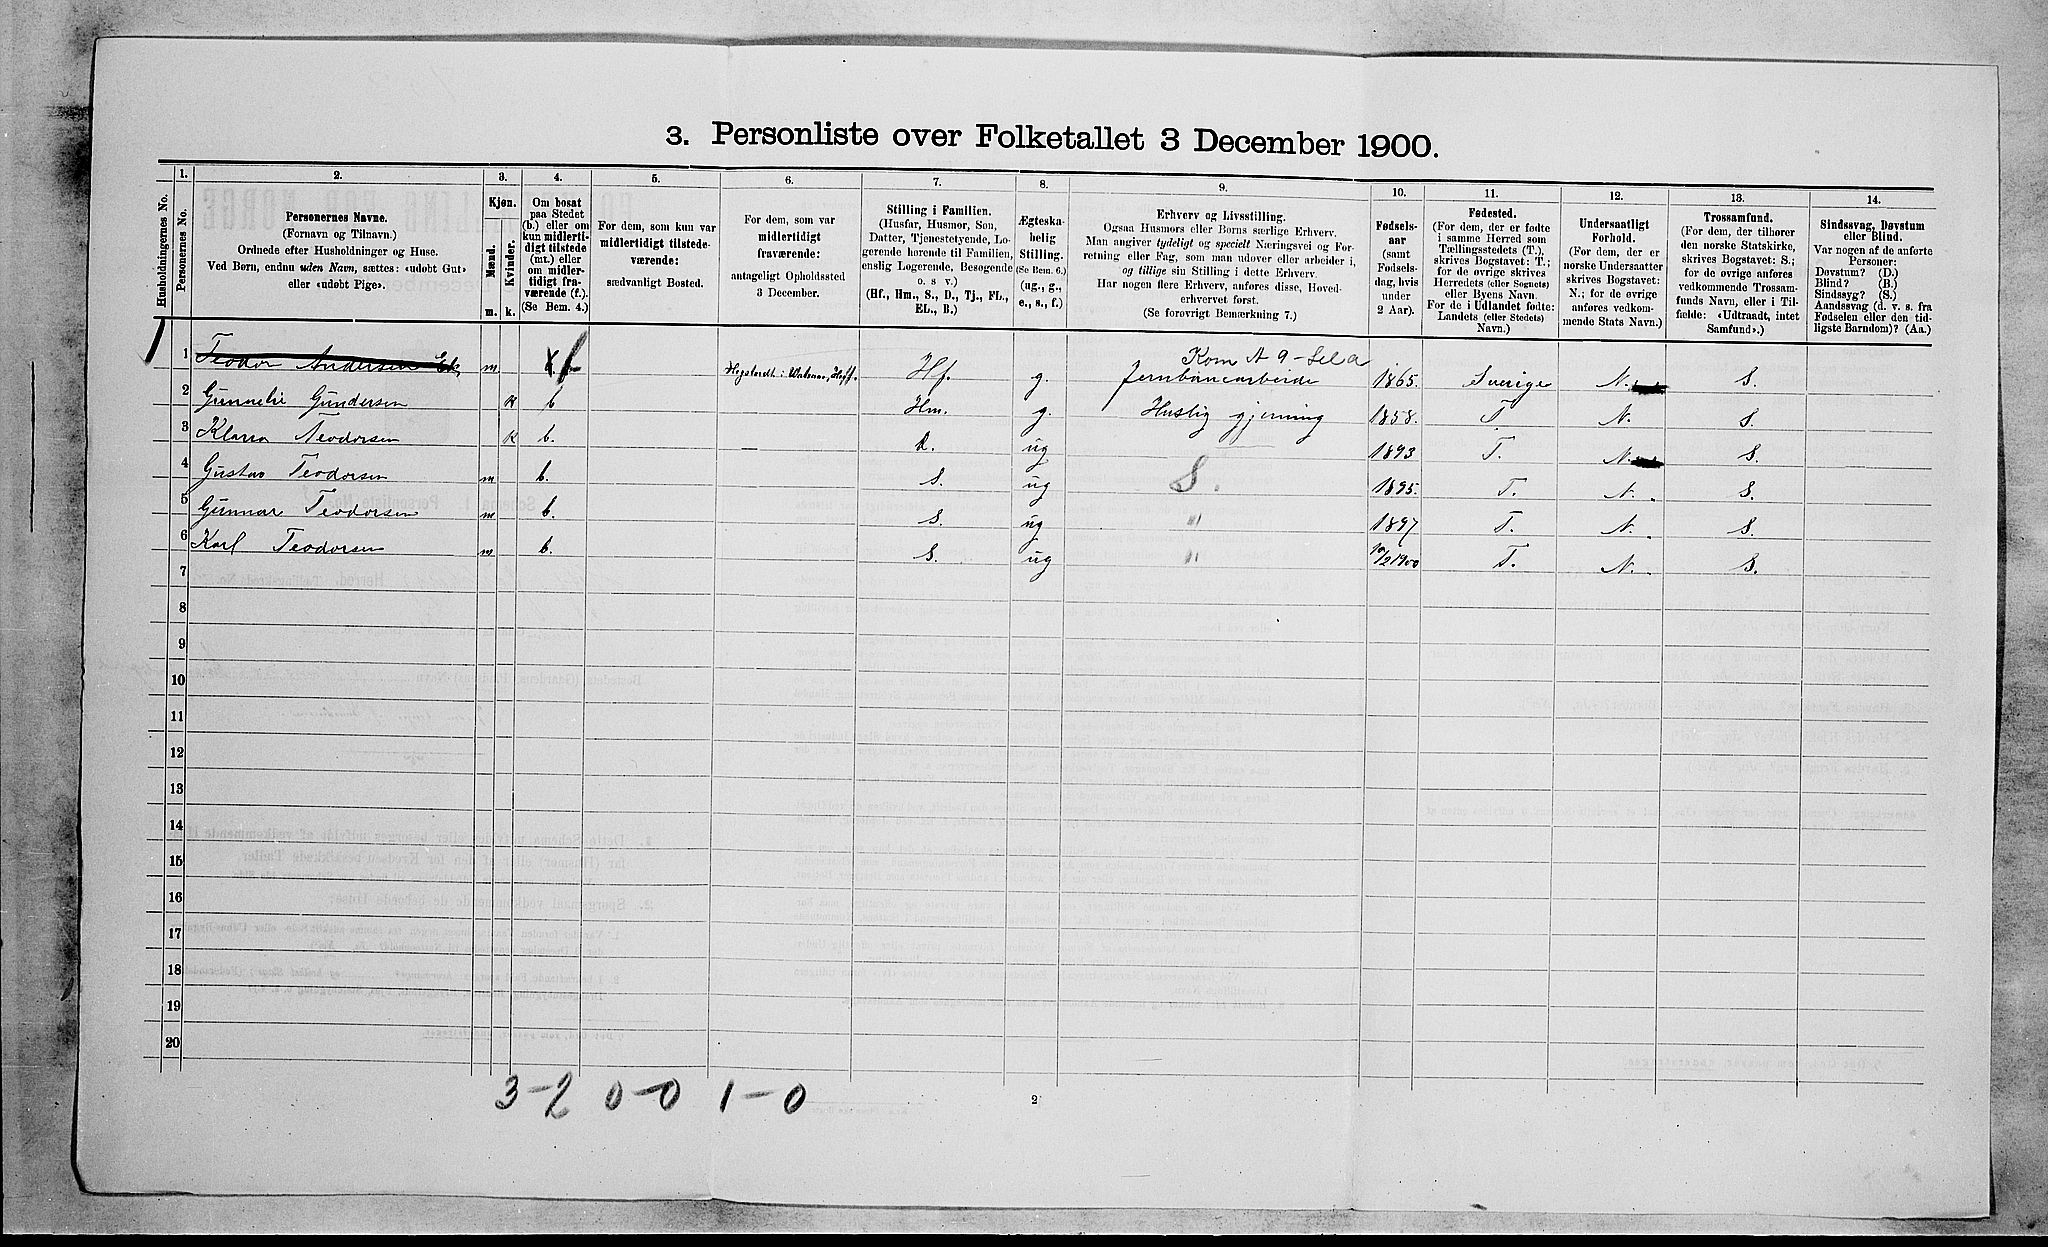 3. Personliste over Folketallet 3 December 1900.
1. 2. 3. 4. 5. 6. 7. 8. 9. 10. 11. 12. 13. 14.
Husholdningernes No.
Personernes No.
Personernes Navne.
(Fornavn og Tilnavn.)
Ordnede efter Husholdninger og Huse.
Ved Børn, endnu uden Navn, sættes: «udøbt Gut»
eller «udøbt Pige».
Kjøn.
Mænd.
Kvinder.
m. k.
Om bosat
paa Stedet
(b.) eller om
kun midlerti-
digt tilstede
(mt.) eller
om midler-
tidigt fra-
værende (f.).
(Se Bem. 4.)
For dem, som kun var
midlertidigt tilstede-
værende:
sædvanligt Bosted.
For dem, som var
midlertidigt
fraværende:
antageligt Opholdssted
3 December.
Stilling i Familien.
(Husfar, Husmor, Søn,
Datter, Tjenestetyende, Lo-
gerende hørende til Familien,
enslig Logerende, Besøgende
o. s. v.)
(Hf., Hm., S., D., Tj., FL.,
EL., B.)
Ægteska-
belig
Stilling.
(Se Bem. 6.)
(ug., g.,
e., s., f.)
Erhverv og Livsstilling.
Ogsaa Husmors eller Børns særlige Erhverv.
Man angiver tydeligt og specielt Næringsvei og For-
retning eller Fag, som man udover eller arbeider i,
og tillige sin Stilling i dette Erhverv.
Har nogen flere Erhverv, anføres disse, Hoved-
erhvervet først.
(Se forøvrigt Bemærkning 7.)
Fødsels-
aar
(samt
Fødsels-
dag, hvis
under
2 Aar).
Fødested.
(For dem, der er fødte
i samme Herred som
Tællingsstedets (T.),
skrives Bogstavet: T.;
for de øvrige skrives
Herredets (eller Sognets)
eller Byens Navn.
For de i Udlandet fødte:
Landets (eller Stedets)
Navn.)
Undersaatligt
Forhold.
(For dem, der er
norske Undersaatter
skrives Bogstavet:
N.; for de øvrige
anføres vedkom-
mende Stats Navn.)
Trossamfund.
(For dem, der tilhører
den norske Statskirke,
skrives Bogstavet: S.;
for de øvrige anføres
vedkommende Trossam-
funds Navn, eller i Til-
fælde: «Udtraadt, intet
Samfund».)
Sindssvag, Døvstum
eller Blind.
Var nogen af de anførte
Personer:
Døvstum? (D.)
Blind? (B.)
Sindssyg? (S.)
Aandssvag (d. v. s. fra
Fødselen eller den tid-
ligste Barndom)? (Aa.)
Kom A 9 - Sela
1 1 Teodor Andersen Ek, m f Hf. g. Jernbanearbeide 1865. Sverige N. S.
2 Gunnelie Gundersen k b Hm. g. Huslig gjerning 1858. T. N. S.
3 Klara Teodorsen k b. D. ug 1893 T. N. S.
4 Gustav Teodorsen m b. S. ug S. 1895. T. N. S.
5 Gunnar Teodorsen m b. S. ug " 1897 T. N. S.
6 Karl Teodorsen m b. S. ug " 10/2 1900 T. N. S.
7
8
9
10
11
12
13
14
15
16
17
18
19
20
3-2 0-0 1-0
2